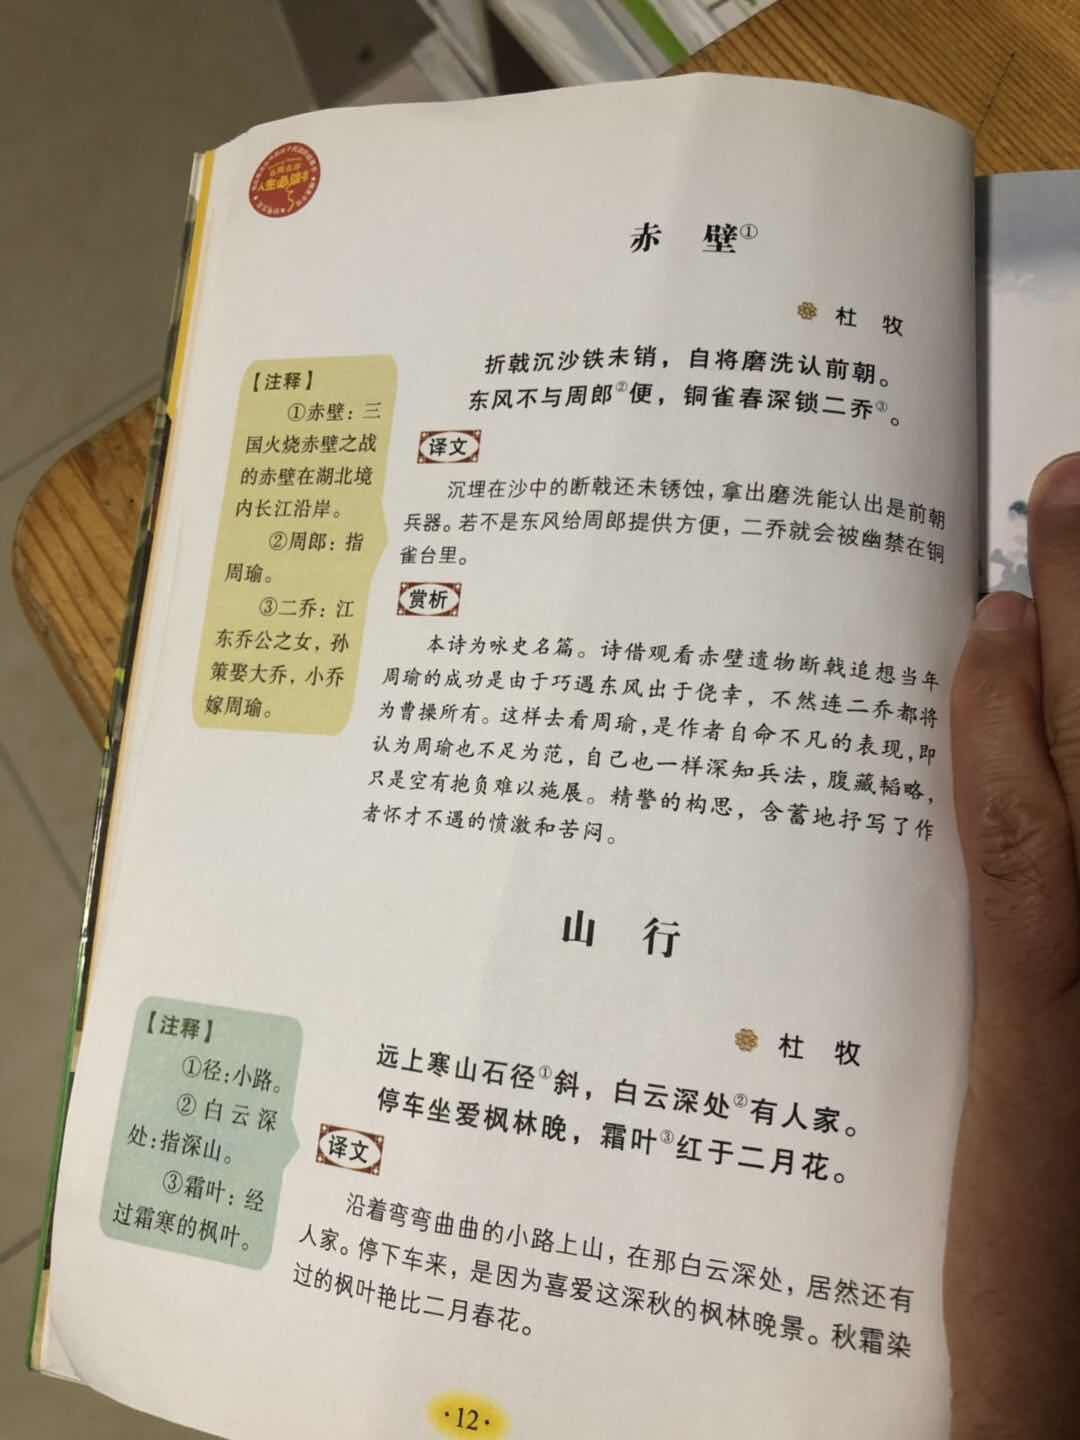 人生必读书
赤 壁①
杜 牧
折戟沉沙铁未销，自将磨洗认前朝。
东风不与周郎②便，铜雀春深锁二乔③。
【注释】
①赤壁：三
国火烧赤壁之战
的赤壁在湖北境
内长江沿岸。
②周郎：指
周瑜。
③二乔：江
东乔公之女，孙
策娶大乔，小乔
嫁周瑜。
译文
沉埋在沙中的断戟还未锈蚀，拿出磨洗能认出是前朝
兵器。若不是东风给周郎提供方便，二乔就会被幽禁在铜
雀台里。
赏析
本诗为咏史名篇。诗借观看赤壁遗物断戟追想当年
周瑜的成功是由于巧遇东风出于侥幸，不然连二乔都将
为曹操所有。这样去看周瑜，是作者自命不凡的表现，即
认为周瑜也不足为范，自己也一样深知兵法，腹藏韬略，
只是空有抱负难以施展。精警的构思，含蓄地抒写了作
者怀才不遇的愤激和苦闷。
山 行
杜 牧
远上寒山石径①斜，白云深处②有人家。
停车坐爱枫林晚，霜叶③红于二月花。
【注释】
①径：小路。
②白云深
处：指深山。
③霜叶：经
过霜寒的枫叶。
译文
沿着弯弯曲曲的小路上山，在那白云深处，居然还有
人家。停下车来，是因为喜爱这深秋的枫林晚景。秋霜染
过的枫叶艳比二月春花。
·12·